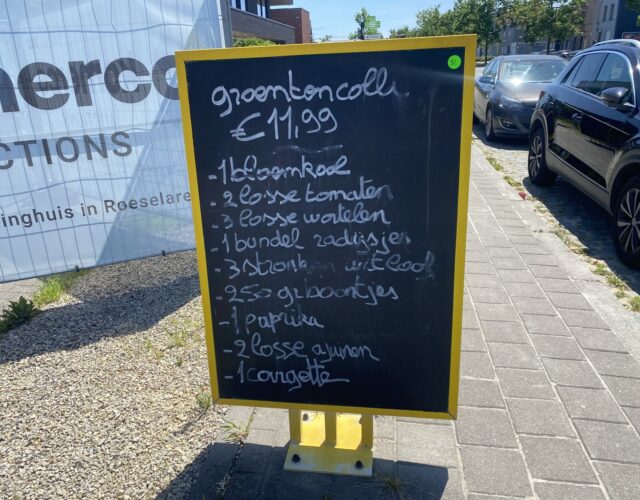 nerco
CTIONS
inghuis in Roeselare
groenten colli
€11,99
- 1 bloemkool
- 2 losse tomaten
- 3 losse wortelen
- 1 bundel radijsjes
- 3 stronken witloof
- 250 gr boontjes
- 1 paprika
- 2 losse ajuinen
- 1 courgette